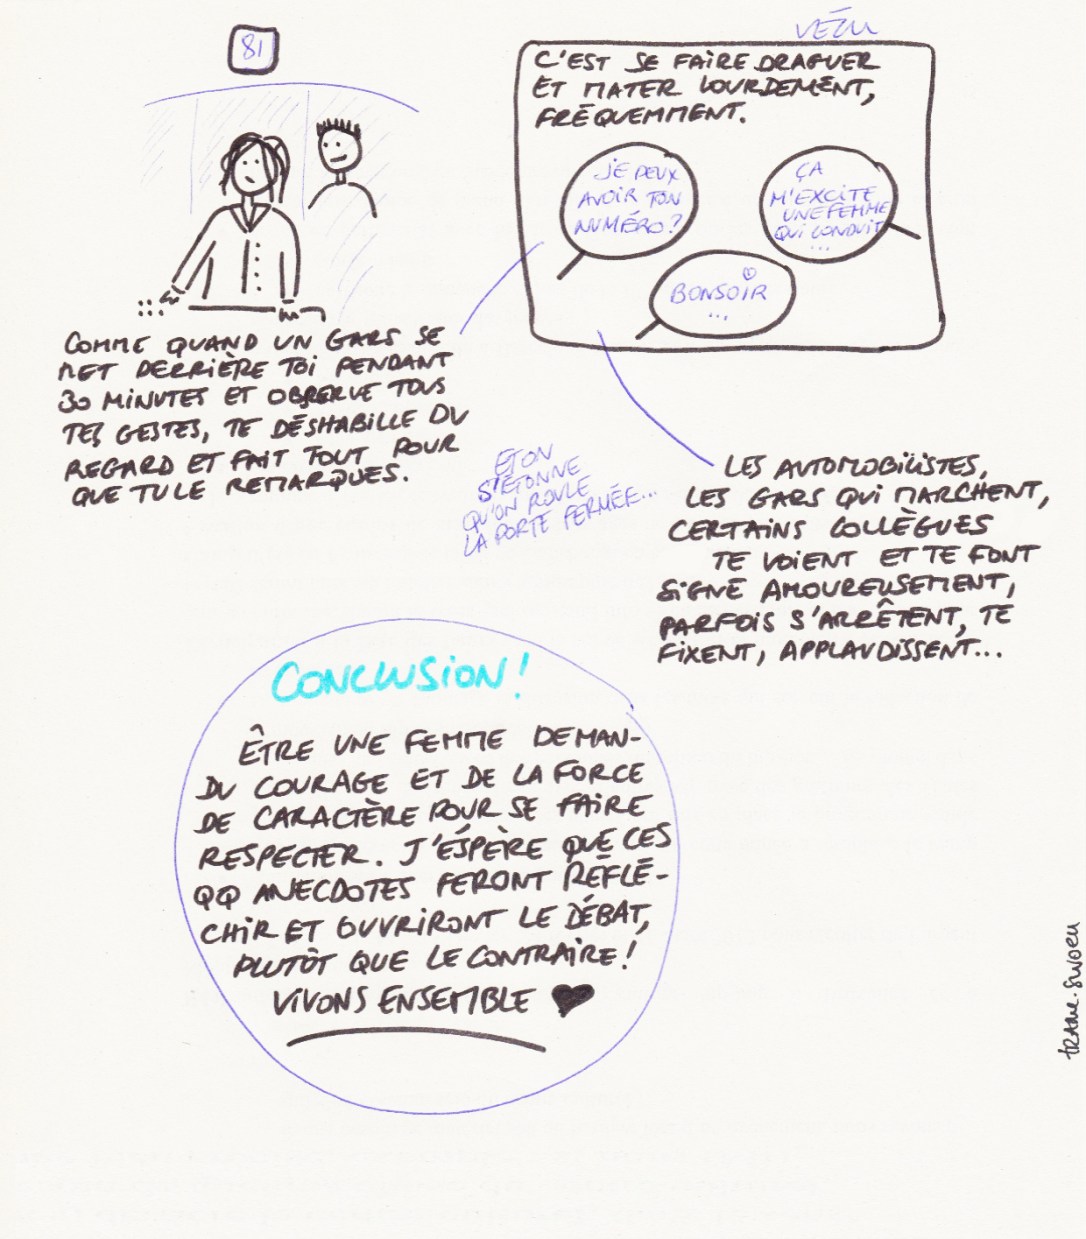 81
VÉCU
C'EST SE FAIRE DRAGUER
ET MATER LOURDEMENT,
FRÉQUEMMENT.
JE PEUX
AVOIR TON
NUMÉRO?
ÇA
M'EXCITE
UNE FEMME
QUI CONDUIT
...
BONSOIR
...
COMME QUAND UN GARS SE
MET DERRIÈRE TOI PENDANT
30 MINUTES ET OBSERVE TOUS
TES GESTES, TE DÉSHABILLE DU
REGARD ET FAIT TOUT POUR
QUE TU LE REMARQUES.
ET ON
S'ÉTONNE
QU'ON ROULE
LA PORTE FERMÉE...
LES AUTOMOBILISTES,
LES GARS QUI MARCHENT,
CERTAINS COLLÈGUES
TE VOIENT ET TE FONT
SIGNE AMOUREUSEMENT,
PARFOIS S'ARRÊTENT, TE
FIXENT, APPLAUDISSENT...
CONCLUSION!
ÊTRE UNE FEMME DEMAN-
DU COURAGE ET DE LA FORCE
DE CARACTÈRE POUR SE FAIRE
RESPECTER. J'ESPÈRE QUE CES
QQ ANECDOTES FERONT RÉFLÉ-
CHIR ET OUVRIRONT LE DÉBAT,
PLUTÔT QUE LE CONTRAIRE!
VIVONS ENSEMBLE ♥